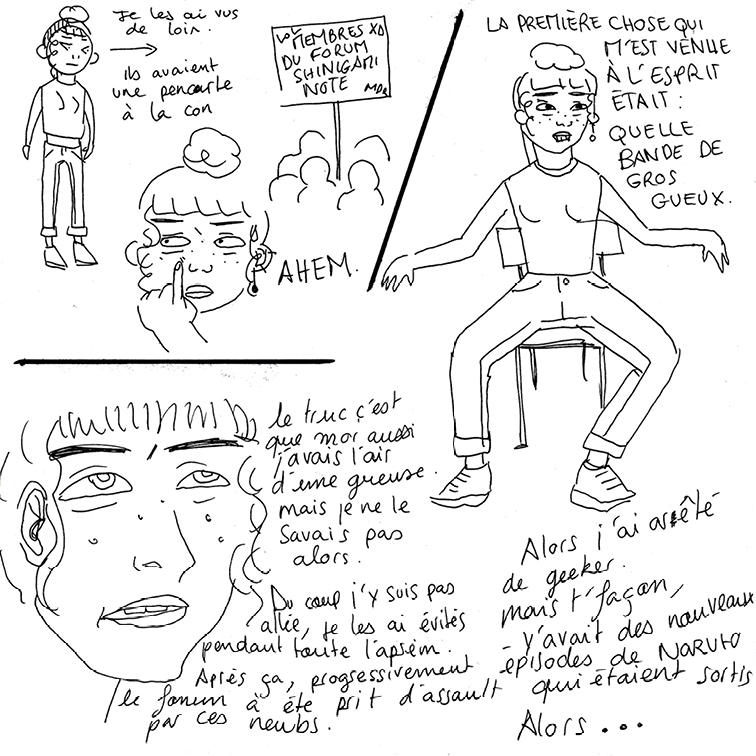 Je les ai vus
de loin.
ils avaient
une pancarte
à la con
MEMBRES XD
DU FORUM
SHINIGAMI
NOTE
MDR
AHEM.
LA PREMIÈRE CHOSE QUI
M'EST VENUE
À L'ESPRIT
ÉTAIT :
QUELLE
BANDE DE
GROS
GUEUX.
le truc c'est
que moi aussi
j'avais l'air
d'une gueuse.
mais je ne le
savais pas
alors.
Du coup j'y suis pas
allée, je les ai évités
pendant toute l'aprèm.
Après ça, progressivement
le forum à été prit d'assault
par ces newbs.
Alors j'ai arrêté
de geeker.
mais t'façon,
y'avait des nouveaux
épisodes de NARUTO
qui étaient sortis
Alors...